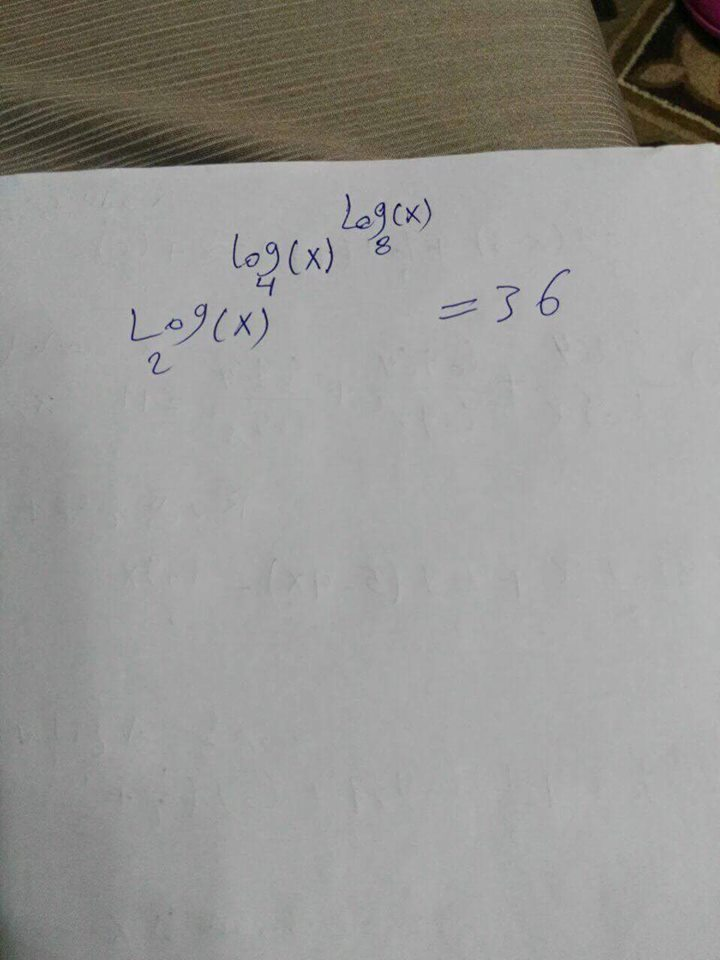 Log₂(x)^log₄(x)^Log₈(x) = 36